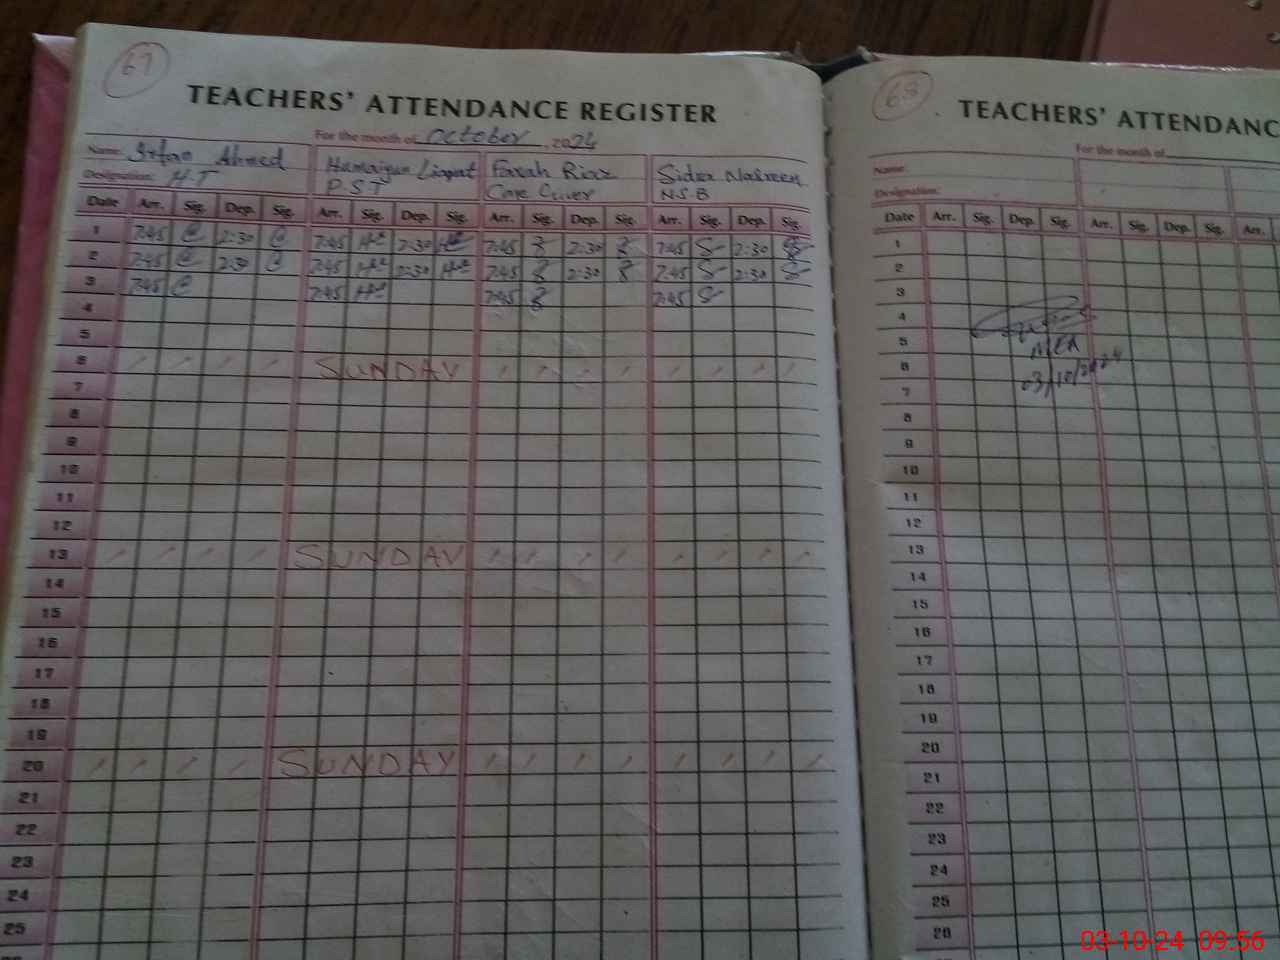 67
TEACHERS' ATTENDANCE REGISTER
For the month of October, 2024
Name: Irfan Ahmed Humaiyun Liaqat Farah Riaz Sidra Nasreen
Designation: H.T P.S.T Care Giver N.S.B
Date Arr. Sig. Dep. Sig. Arr. Sig. Dep. Sig. Arr. Sig. Dep. Sig. Arr. Sig. Dep. Sig.
1 7:45 2:30 7:45 2:30 7:45 2:30 7:45 2:30
2 7:45 2:30 7:45 2:30 7:45 2:30 7:45 2:30
3 7:45 7:45 7:45 7:45
4
5
6 SUNDAY
7
8
9
10
11
12
13 SUNDAY
14
15
16
17
18
19
20 SUNDAY
21
22
23
24
25
68
TEACHERS' ATTENDANC
For the month of
Name:
Designation:
Date Arr. Sig. Dep. Sig. Arr. Sig. Dep. Sig. Arr.
1
2
3
4
5
MEA
6
03/10/2024
7
8
9
10
11
12
13
14
15
16
17
18
19
20
21
22
23
24
25
26
03-10-24 09:56